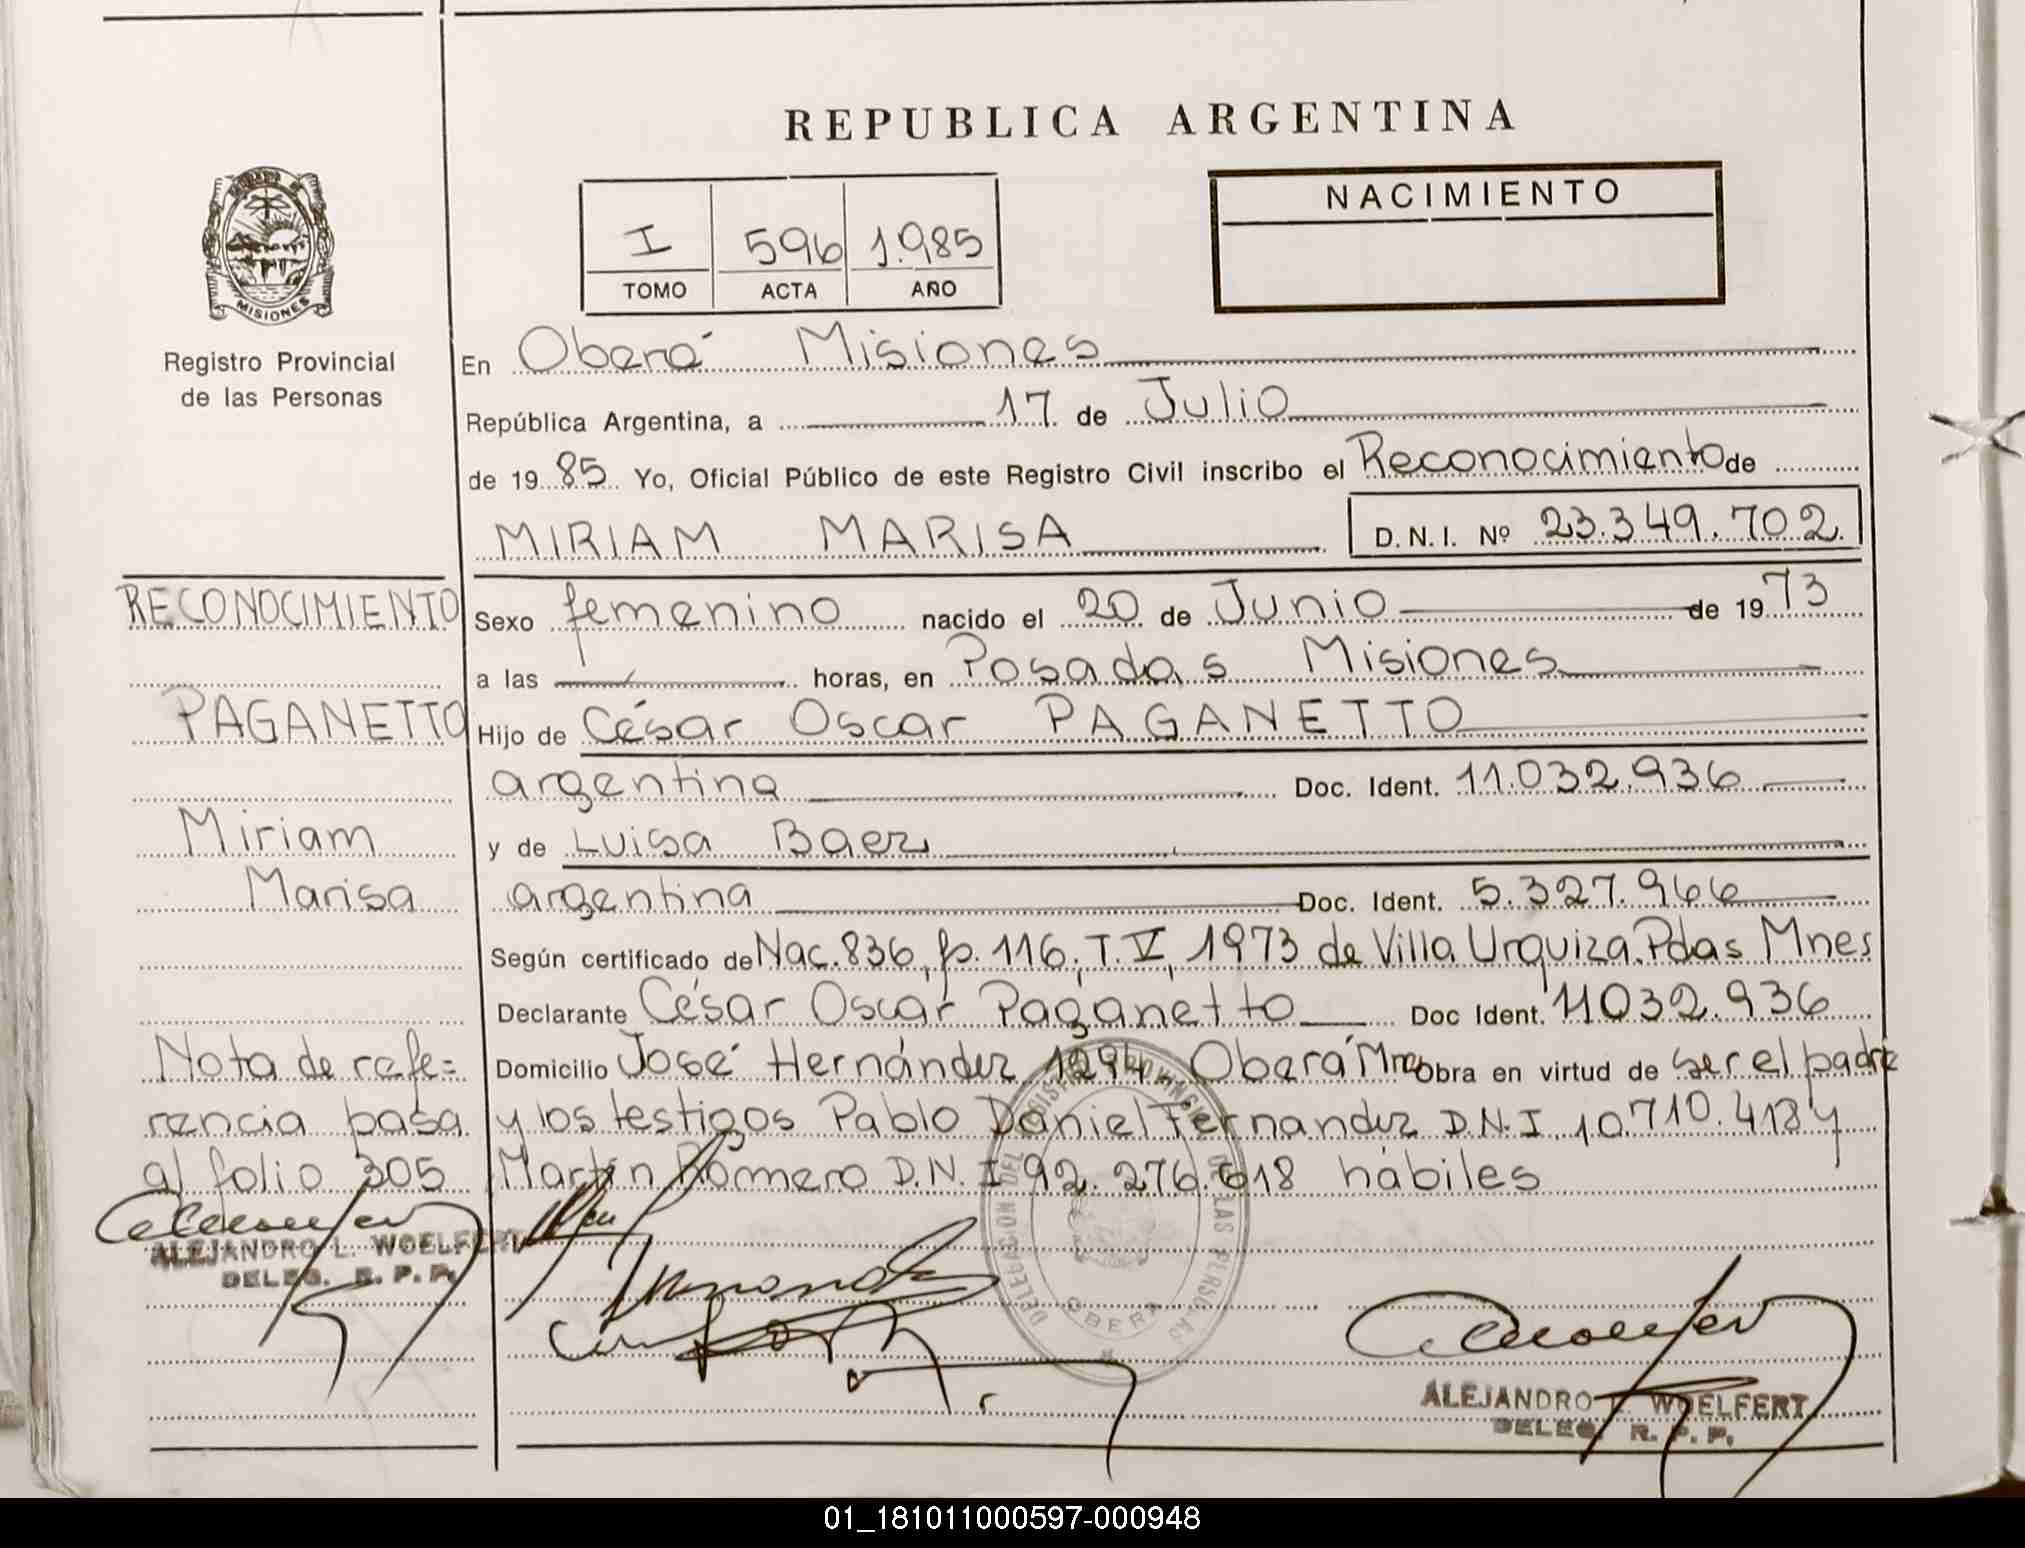 REPUBLICA ARGENTINA
NACIMIENTO
I 596 1.985
TOMO ACTA AÑO
MISIONES
Registro Provincial
de las Personas
En Oberá Misiones
República Argentina, a 17 de Julio
de 19 85 Yo, Oficial Público de este Registro Civil inscribo el Reconocimiento de
MIRIAM MARISA D.N.I. Nº 23.349.702
RECONOCIMIENTO
PAGANETTO
Miriam
Marisa
Nota de refe=
rencia pasa
al folio 305
ALEJANDRO L. WOELFERT
DELEG. R. P. P.
Sexo femenino nacido el 20 de Junio de 19 73
a las horas, en Posadas Misiones
Hijo de César Oscar PAGANETTO
argentina Doc. Ident. 11.032.936
y de Luisa Baez
argentina Doc. Ident. 5.327.966
Según certificado de Nac. 836, fo. 116, T. V, 1973 de Villa Urquiza. Pdas Mnes
Declarante César Oscar Paganetto Doc Ident. 11032.936
Domicilio José Hernández 1294 - Oberá Mnes Obra en virtud de ser el padre
y los testigos Pablo Daniel Fernandez D.N.I 10.710.413 y
Martín Romero D.N.I 92.276.618 hábiles
DELEGACION DEL REGISTRO PROVINCIAL DE LAS PERSONAS
OBERA
ALEJANDRO L. WOELFERT
DELEG. R. P. P.
01_181011000597-000948